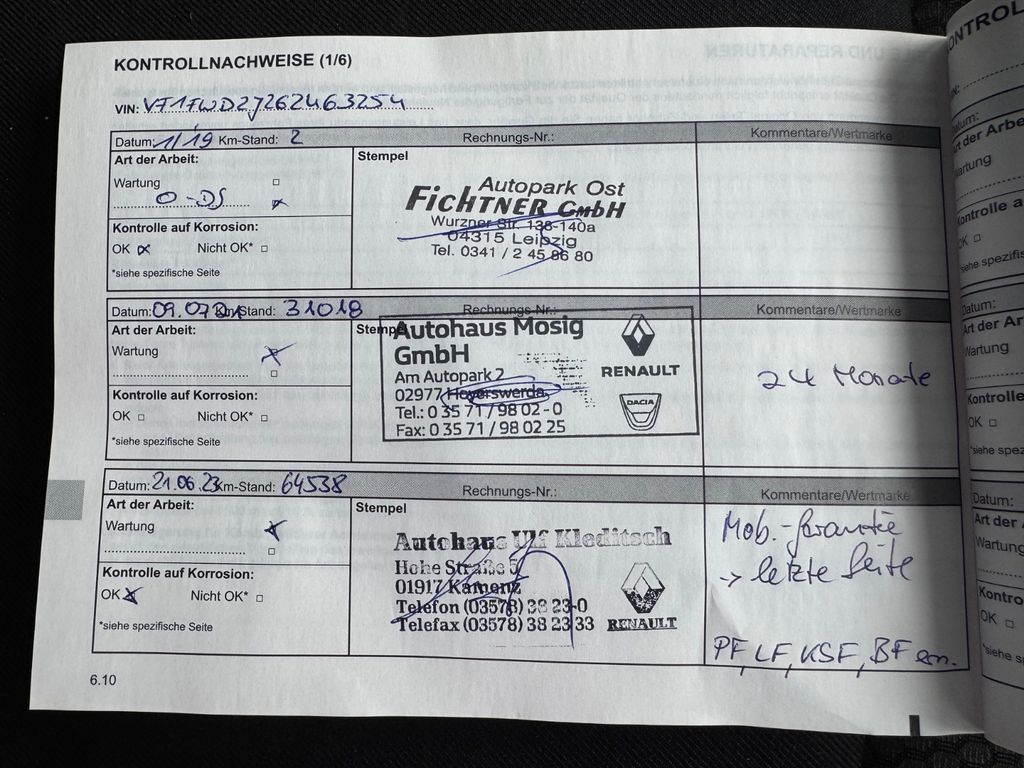 KONTROLLNACHWEISE (1/6)
VIN: VF1FWD2J262463254
Datum: 1/19 Km-Stand: 2 Rechnungs-Nr.: Kommentare/Wertmarke
Art der Arbeit: Stempel
Wartung
O-DS
Kontrolle auf Korrosion:
OK Nicht OK*
*siehe spezifische Seite
Autopark Ost
FICHTNER GmbH
Wurzner Str. 138-140a
04315 Leipzig
Tel. 0341 / 2 45 86 80
Datum: 09.07.21 Km-Stand: 31018 Rechnungs-Nr.: Kommentare/Wertmarke
Art der Arbeit: Stempel
Wartung
Kontrolle auf Korrosion:
OK Nicht OK*
*siehe spezifische Seite
Autohaus Mosig
GmbH
Am Autopark 2
02977 Hoyerswerda
Tel.: 0 35 71 / 98 02 - 0
Fax: 0 35 71 / 98 02 25
RENAULT
DACIA
24 Monate
Datum: 21.06.23 Km-Stand: 64538 Rechnungs-Nr.: Kommentare/Wertmarke
Art der Arbeit: Stempel
Wartung
Kontrolle auf Korrosion:
OK Nicht OK*
*siehe spezifische Seite
Autohaus Ulf Kleditsch
Hohe Straße 5
01917 Kamenz
Telefon (03578) 38 23-0
Telefax (03578) 38 23 33
RENAULT
Mob.-Garantie
→ letzte Seite
PF, LF, KSF, BF ern.
6.10